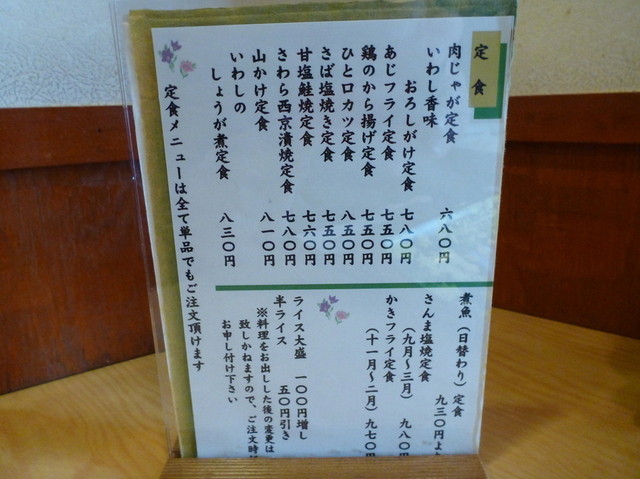 定食
肉じゃが定食 六八〇円
いわし香味
おろしがけ定食 七八〇円
あじフライ定食 七五〇円
鶏のから揚げ定食 七五〇円
ひと口カツ定食 八五〇円
さば塩焼き定食 七五〇円
甘塩鮭焼定食 七六〇円
さわら西京漬焼定食 七八〇円
山かけ定食 八一〇円
いわしの
しょうが煮定食 八三〇円
煮魚（日替わり）定食
九三〇円より
さんま塩焼定食
（九月～三月） 九八〇円
かきフライ定食
（十一月～二月） 九七〇円
ライス大盛 一〇〇円増し
半ライス 五〇円引き
※料理をお出しした後の変更は
致しかねますので、ご注文時
お申し付け下さい
定食メニューは全て単品でもご注文頂けます